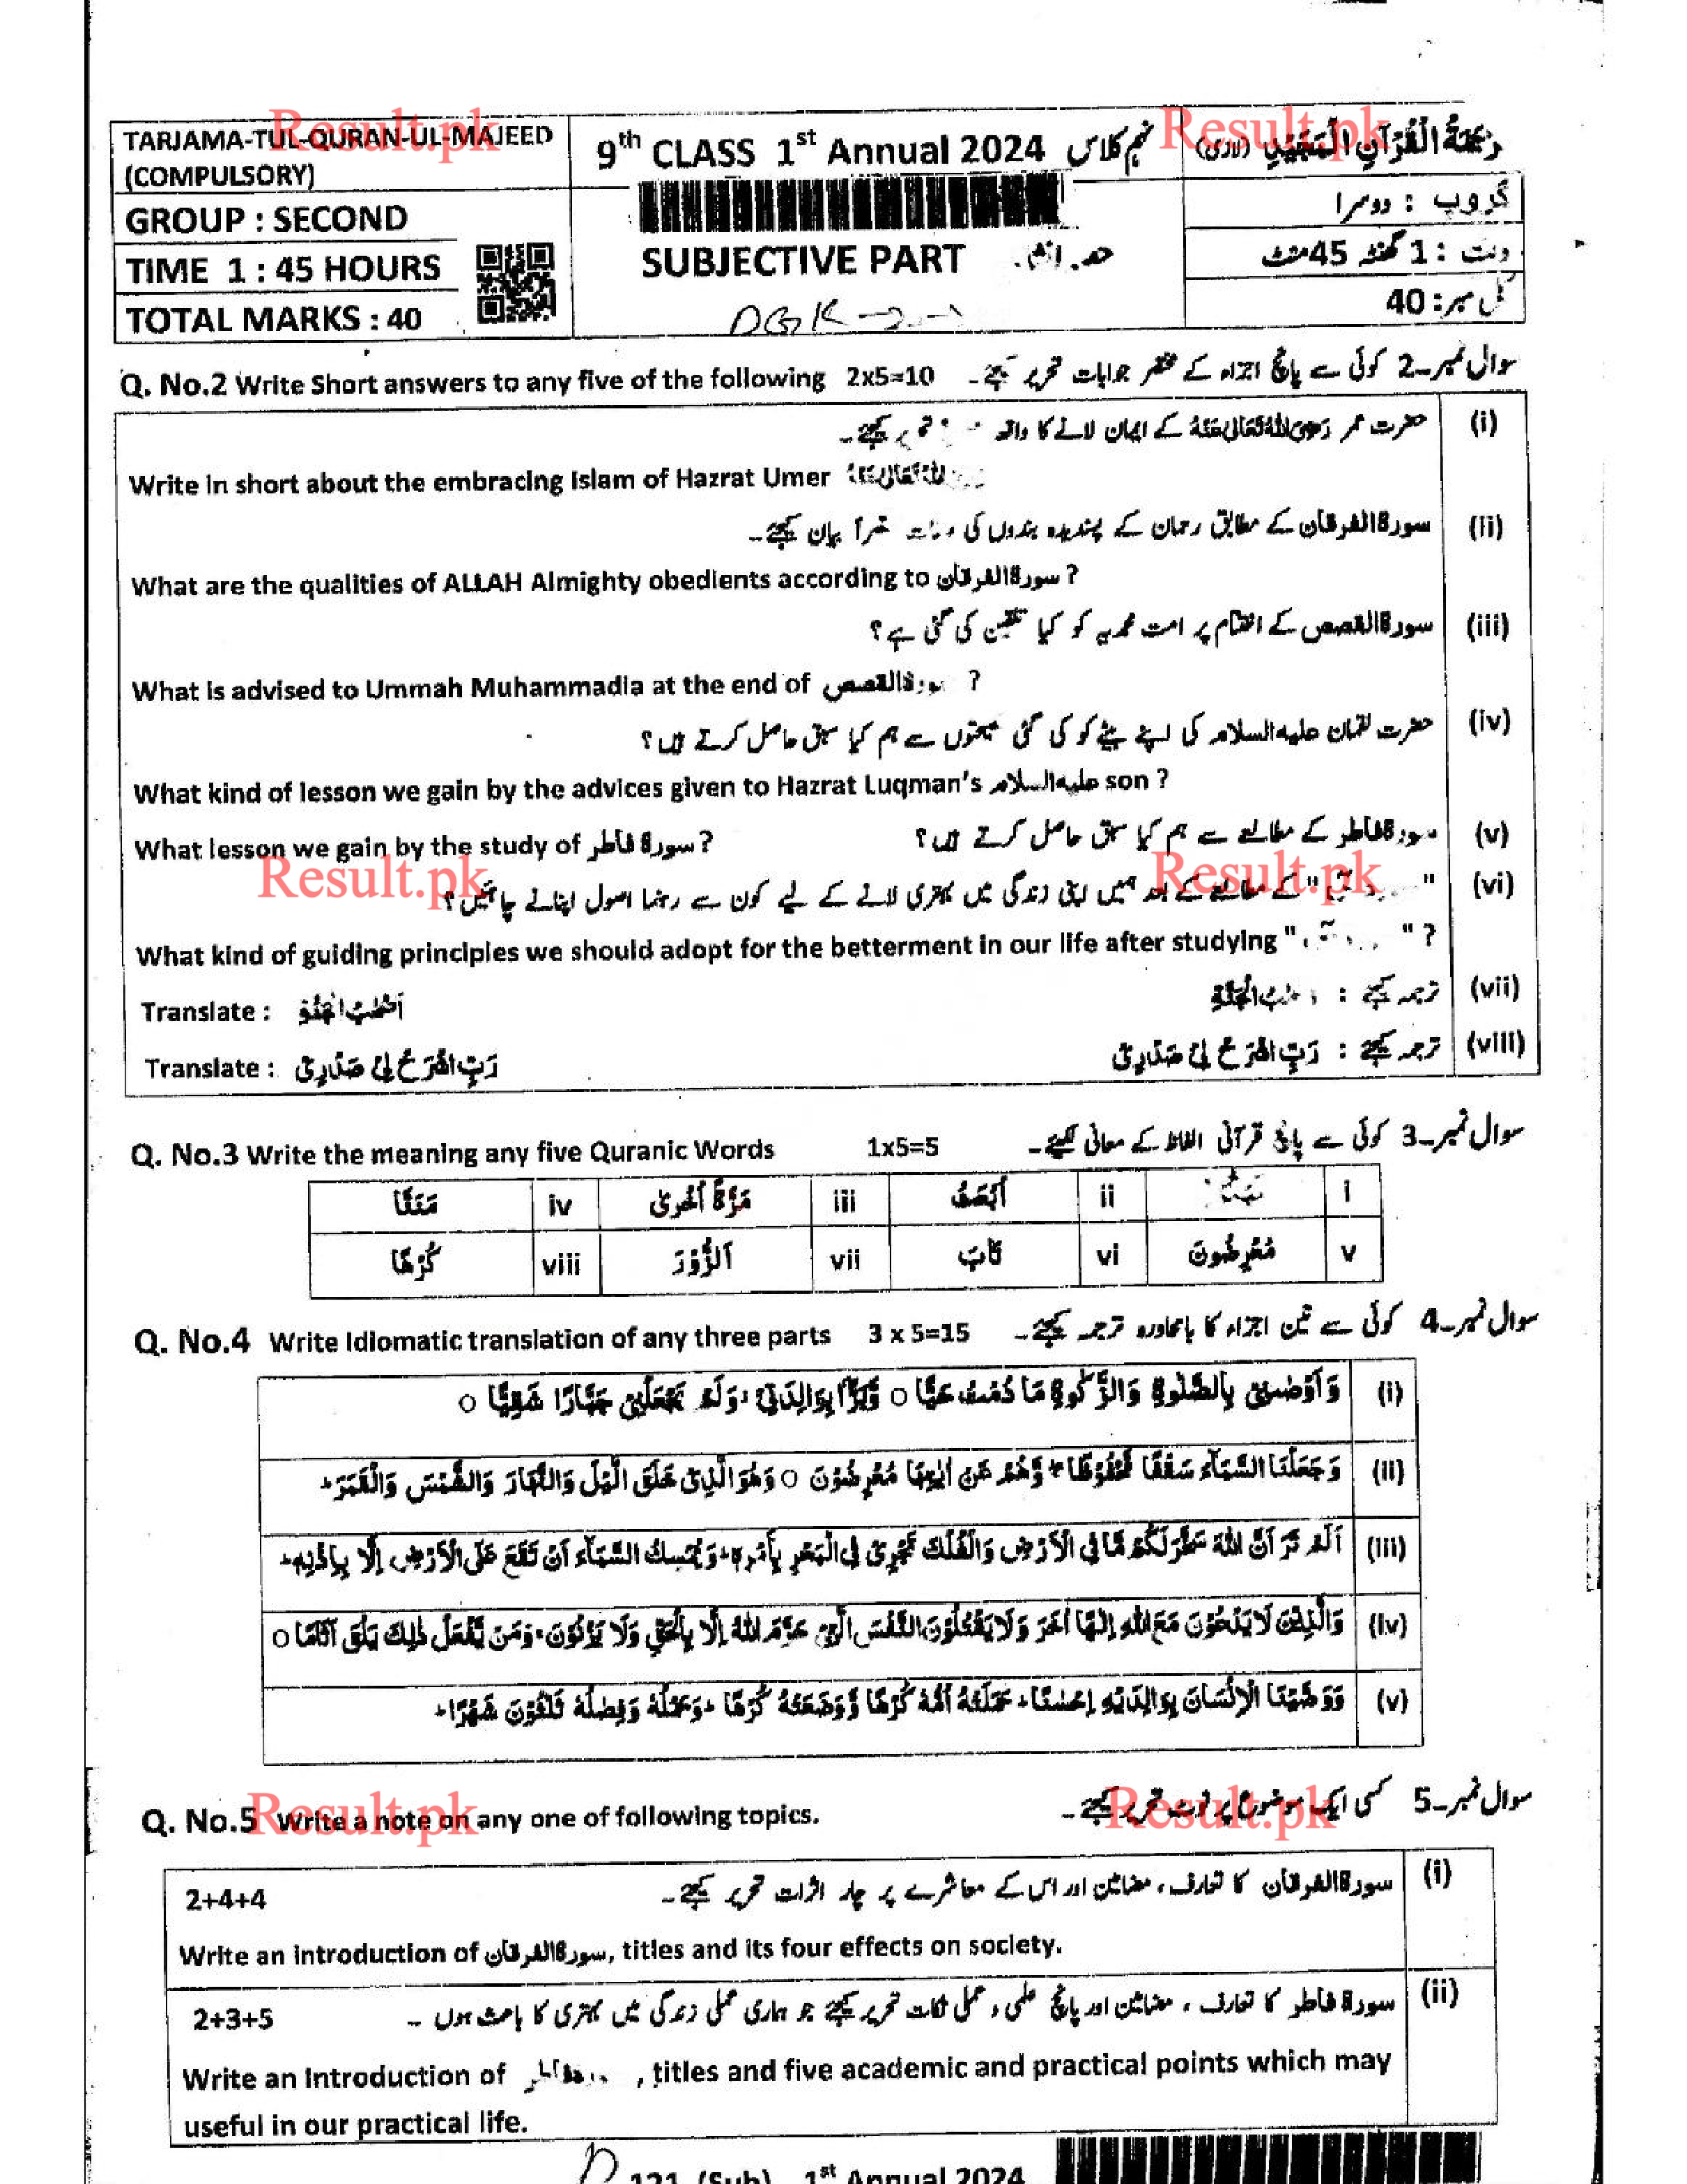 TARJAMA-TUL-QURAN-UL-MAJEED
(COMPULSORY)
9th CLASS 1st Annual 2024 نہم کلاس
GROUP : SECOND
گروپ : دوسرا
TIME 1 : 45 HOURS
SUBJECTIVE PART
وقت : 1 گھنٹہ 45 منٹ
TOTAL MARKS : 40
کل نمبر : 40
Q. No.2 Write Short answers to any five of the following 2x5=10 سوال نمبر 2۔ کوئی سے پانچ اجزاء کے مختصر جوابات تحریر کیجئے۔
(i) حضرت عمر رضی اللہ تعالیٰ عنہ کے ایمان لانے کا واقعہ تحریر کیجئے۔
Write in short about the embracing Islam of Hazrat Umer
(ii) سورۃ الفرقان کے مطابق رحمان کے پسندیدہ بندوں کی بیان کیجئے۔
What are the qualities of ALLAH Almighty obedients according to سورۃ الفرقان ?
(iii) سورۃ القصص کے اختتام پر امت محمدیہ کو کیا تلقین کی گئی ہے؟
What is advised to Ummah Muhammadia at the end of سورۃ القصص ?
(iv) حضرت لقمان علیہ السلام کی اپنے بیٹے کو کی گئی نصیحتوں سے ہم کیا سبق حاصل کرتے ہیں؟
What kind of lesson we gain by the advices given to Hazrat Luqman's علیہ السلام son ?
(v) سورۃ فاطر کے مطالعے سے ہم کیا سبق حاصل کرتے ہیں؟
What lesson we gain by the study of سورۃ فاطر ?
(vi) " " کے مطالعے کے بعد ہمیں اپنی زندگی میں بہتری لانے کے لیے کون سے رہنما اصول اپنانے چاہئیں؟
What kind of guiding principles we should adopt for the betterment in our life after studying " " ?
(vii) ترجمہ کیجئے : اَصْحٰبُ الْجَنَّةِ
Translate : اَصْحٰبُ الْجَنَّةِ
(viii) ترجمہ کیجئے : رَبِّ اشْرَحْ لِیْ صَدْرِیْ
Translate : رَبِّ اشْرَحْ لِیْ صَدْرِیْ
Q. No.3 Write the meaning any five Quranic Words 1x5=5 سوال نمبر 3۔ کوئی سے پانچ قرآنی الفاظ کے معانی لکھئے۔
i ii iii مَرَّةً اُخْرٰی iv
v مُعْرِضُوْنَ vi تَابَ vii اَلزُّوْرَ viii كُرْهًا
Q. No.4 Write Idiomatic translation of any three parts 3 x 5=15 سوال نمبر 4۔ کوئی سے تین اجزاء کا بامحاورہ ترجمہ کیجئے۔
(i) وَاَوْصٰنِیْ بِالصَّلٰوةِ وَالزَّكٰوةِ مَا دُمْتُ حَیًّا ○ وَّبَرًّۢا بِوَالِدَتِیْ وَلَمْ یَجْعَلْنِیْ جَبَّارًا شَقِیًّا ○
(ii) وَجَعَلْنَا السَّمَآءَ سَقْفًا مَّحْفُوْظًا وَّهُمْ عَنْ اٰیٰتِهَا مُعْرِضُوْنَ ○ وَهُوَ الَّذِیْ خَلَقَ الَّیْلَ وَالنَّهَارَ وَالشَّمْسَ وَالْقَمَرَ
(iii) اَلَمْ تَرَ اَنَّ اللهَ سَخَّرَ لَكُمْ مَّا فِی الْاَرْضِ وَالْفُلْكَ تَجْرِیْ فِی الْبَحْرِ بِاَمْرِهٖ وَیُمْسِكُ السَّمَآءَ اَنْ تَقَعَ عَلَی الْاَرْضِ اِلَّا بِاِذْنِهٖ
(iv) وَالَّذِیْنَ لَا یَدْعُوْنَ مَعَ اللهِ اِلٰهًا اٰخَرَ وَلَا یَقْتُلُوْنَ النَّفْسَ الَّتِیْ حَرَّمَ اللهُ اِلَّا بِالْحَقِّ وَلَا یَزْنُوْنَ وَمَنْ یَّفْعَلْ ذٰلِكَ یَلْقَ اَثَامًا ○
(v) وَوَصَّیْنَا الْاِنْسَانَ بِوَالِدَیْهِ اِحْسٰنًا حَمَلَتْهُ اُمُّهٗ كُرْهًا وَّوَضَعَتْهُ كُرْهًا وَحَمْلُهٗ وَفِصٰلُهٗ ثَلٰثُوْنَ شَهْرًا
Q. No.5 Write a note on any one of following topics. سوال نمبر 5۔ کسی ایک موضوع پر نوٹ تحریر کیجئے۔
(i) سورۃ الفرقان کا تعارف، مضامین اور اس کے معاشرے پر چار اثرات تحریر کیجئے۔ 2+4+4
Write an introduction of سورۃ الفرقان, titles and its four effects on society.
(ii) سورۃ فاطر کا تعارف، مضامین اور پانچ علمی و عملی نکات تحریر کیجئے جو ہماری عملی زندگی میں بہتری کا باعث ہوں۔ 2+3+5
Write an Introduction of , titles and five academic and practical points which may
useful in our practical life.
121 (Sub) 1st Annual 2024
Result.pk
Result.pk
Result.pk
Result.pk
Result.pk
Result.pk